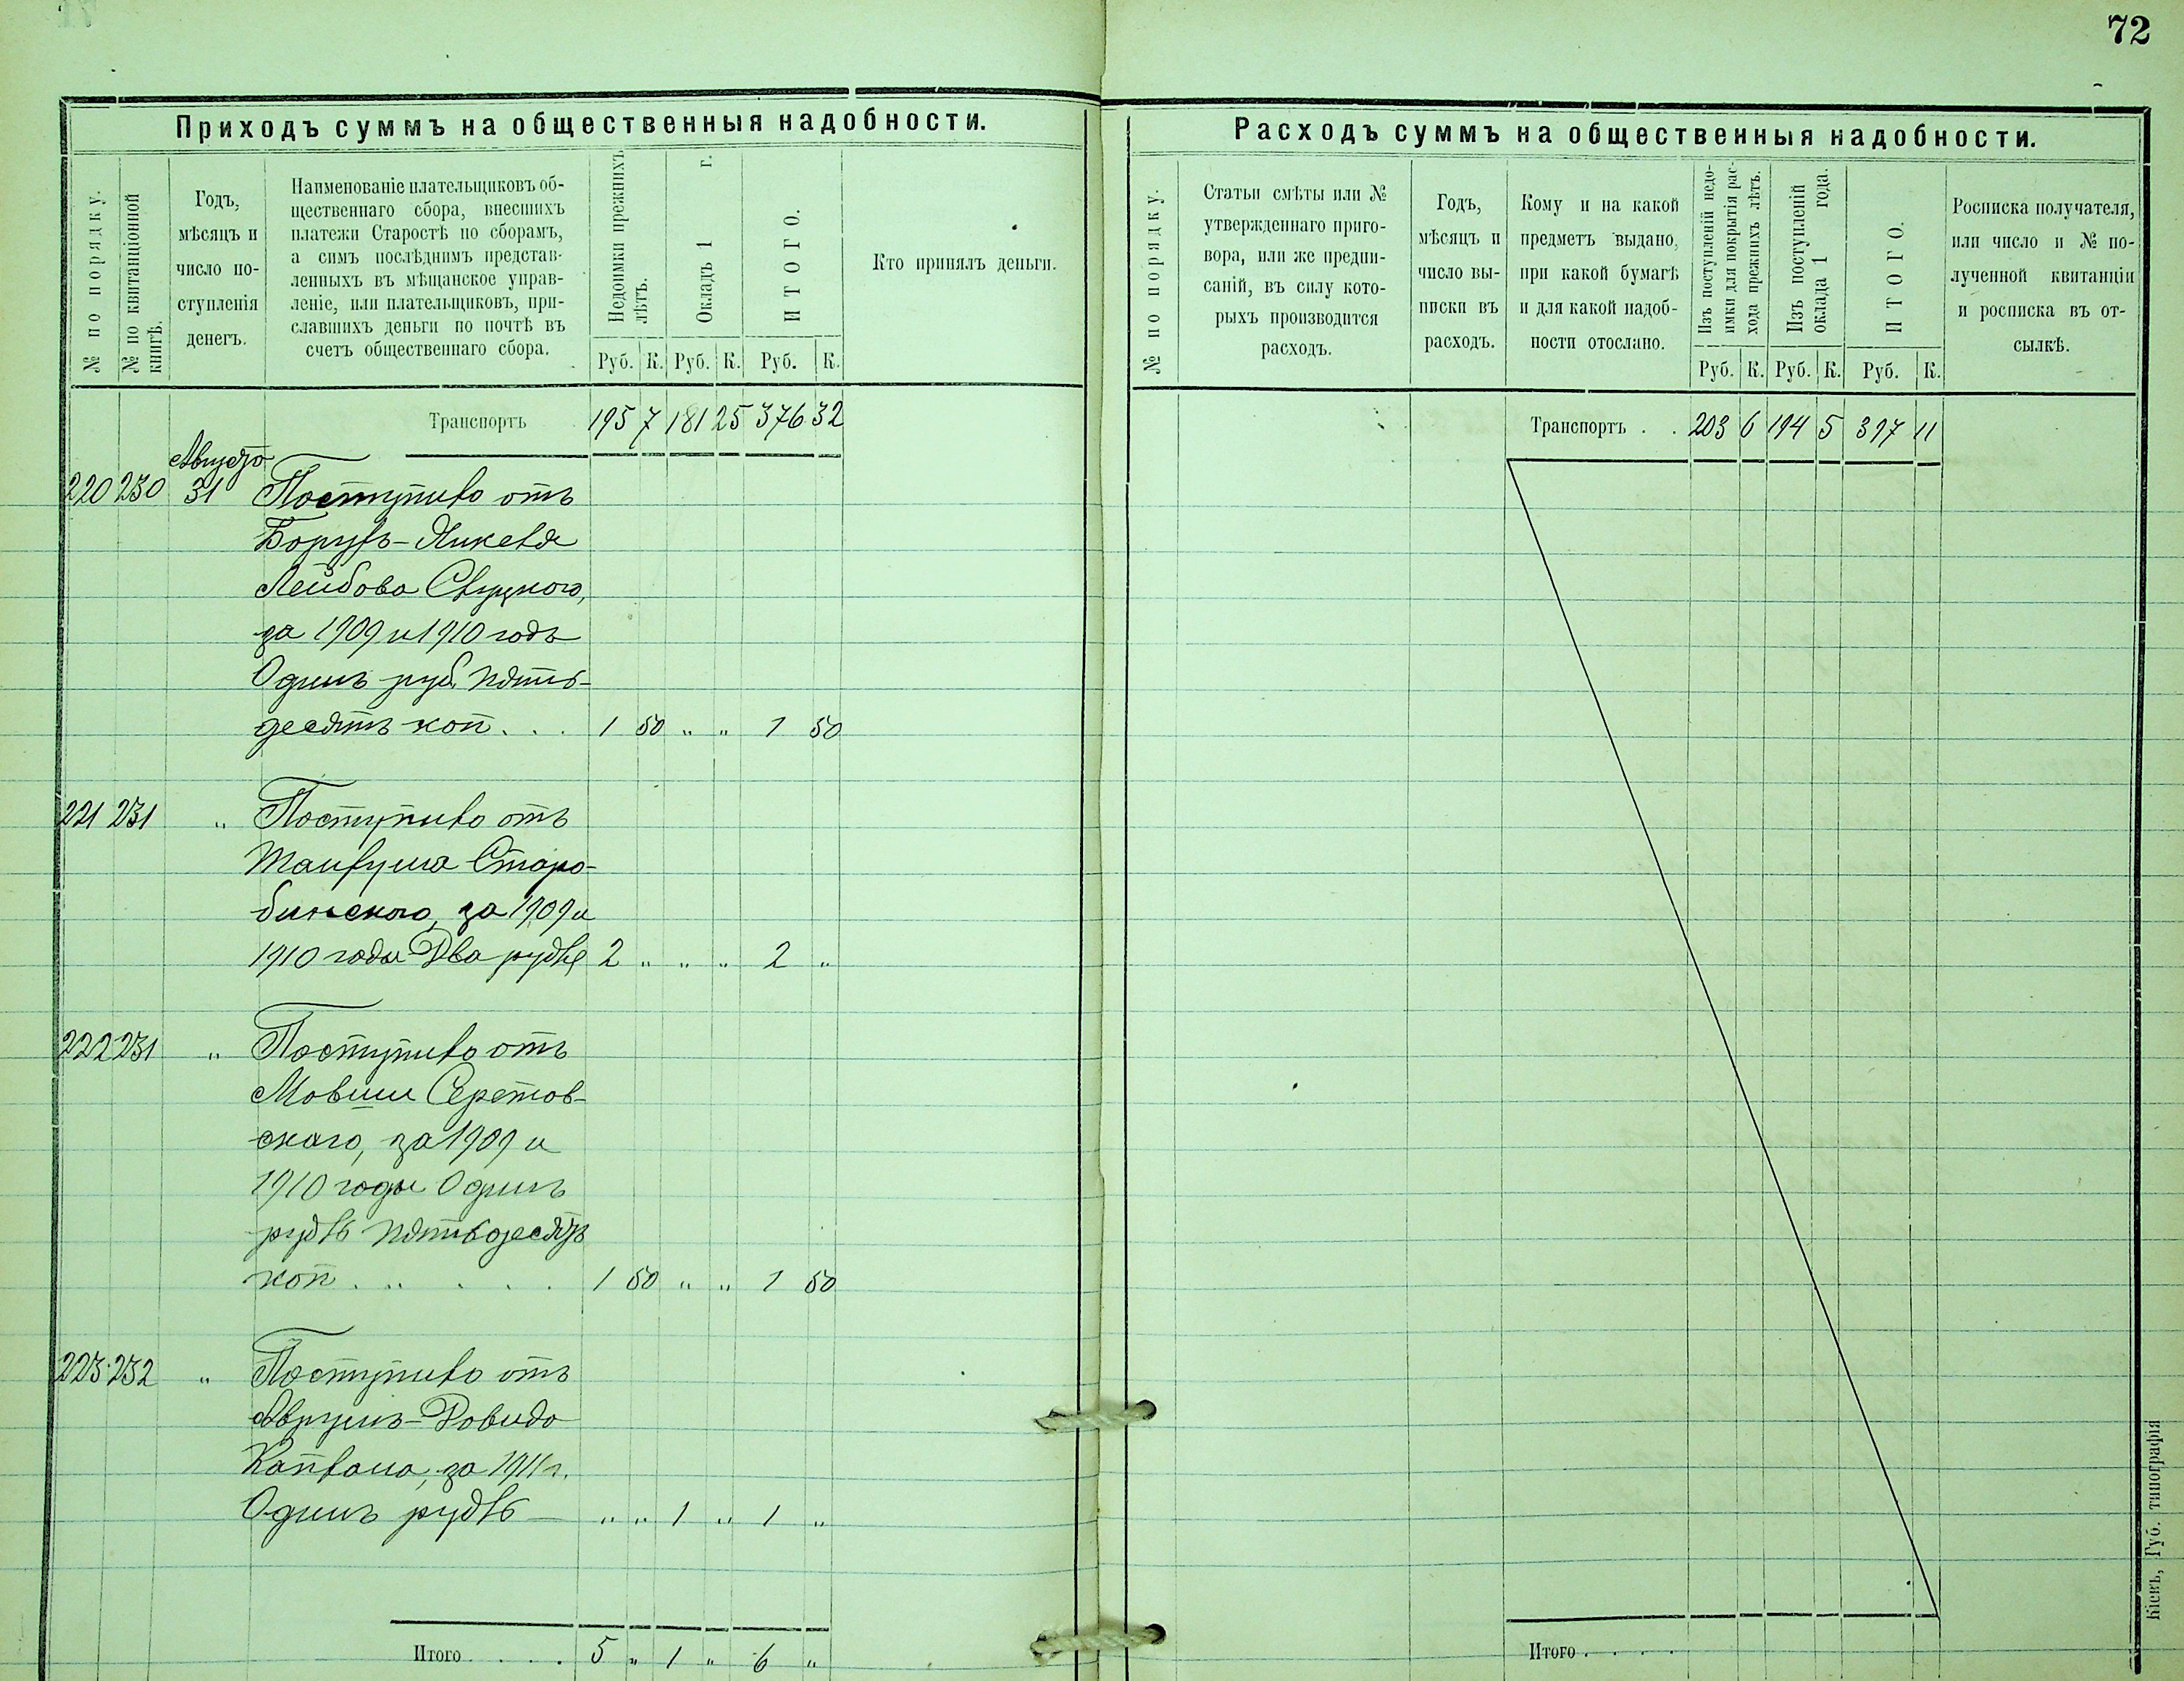 72
Приходъ суммъ на общественныя надобности.
№ по порядку.
№ по квитанціонной
книгѣ.
Годъ,
мѣсяцъ и
число по-
ступленія
денегъ.
Наименованіе плательщиковъ об-
щественнаго сбора, внесшихъ
платежи Старостѣ по сборамъ,
а симъ послѣднимъ представ-
ленныхъ въ мѣщанское управ-
леніе, или плательщиковъ, при-
славшихъ деньги по почтѣ въ
счетъ общественнаго сбора.
Недоимки прежнихъ
лѣтъ.
Окладъ 1 г.
ИТОГО.
Кто принялъ деньги.
Руб. К. Руб. К. Руб. К.
Транспортъ 195 7 181 25 376 32
Августа
220 230 31 Поступило отъ
Борухъ-Янкеля
Лейбова Слуцкого,
за 1909 и 1910 годъ
Одинъ руб. пять-
десятъ коп. . . 1 50 „ „ 1 50
221 231 „ Поступило отъ
Танхума Старо-
бинского, за 1909 и
1910 годы Два рубля 2 „ „ „ 2 „
222 231 „ Поступило отъ
Мовши Серетов-
скаго, за 1909 и
1910 годы Одинъ
рубль пятьдесятъ
коп. . . . . . 1 50 „ „ 1 50
223 232 „ Поступило отъ
Аврумъ-Довида
Каплана, за 1911 г.
Одинъ рубль — „ „ 1 „ 1 „
Итого . . . . 5 „ 1 „ 6 „
Расходъ суммъ на общественныя надобности.
№ по порядку.
Статьи смѣты или №
утвержденнаго приго-
вора, или же предпи-
саній, въ силу кото-
рыхъ производится
расходъ.
Годъ,
мѣсяцъ и
число вы-
писки въ
расходъ.
Кому и на какой
предметъ выдано,
при какой бумагѣ
и для какой надоб-
ности отослано.
Изъ поступленій недо-
имки для покрытія рас-
хода прежнихъ лѣтъ.
Изъ поступленій
оклада 1 года.
ИТОГО.
Росписка получателя,
или число и № по-
лученной квитанціи
и росписка въ от-
сылкѣ.
Руб. К. Руб. К. Руб. К.
Транспортъ . . 203 6 194 5 397 11
Итого . . . .
Кіевъ, Губ. типографія